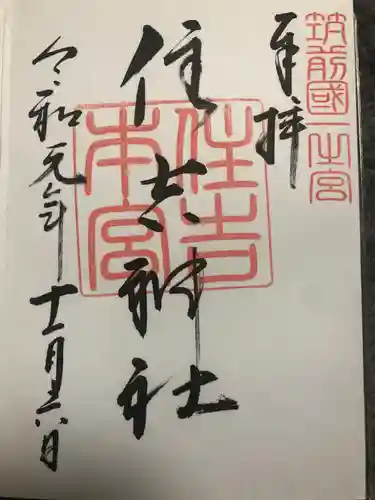 筑前國一之宮
奉拝
住吉神社
住吉本宮
令和元年十二月六日